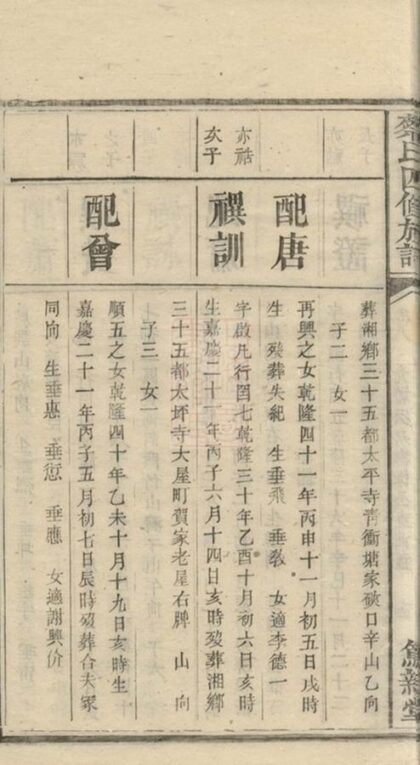 氏四修族譜
葬湘鄉三十五都太平寺青衝塘家磡口辛山乙向
子二 女一
配唐
再興之女乾隆四十一年丙申十一月初五日戌時
生 歿葬失紀 生垂飛 垂敎 女適李德一
亦祰
次子
禩訓
字啟凡行囶七乾隆三十年乙酉十月初六日亥時
生嘉慶二十一年丙子六月十四日亥時歿葬湘鄉
三十五都太坪寺大屋町賀家老屋右牌 山 向
子三 女一
配曾
順五之女乾隆四十年乙未十月十九日亥時生
嘉慶二十一年丙子五月初七日辰時歿葬合夫冢
同向 生垂惠 垂愆 垂應 女適謝興价